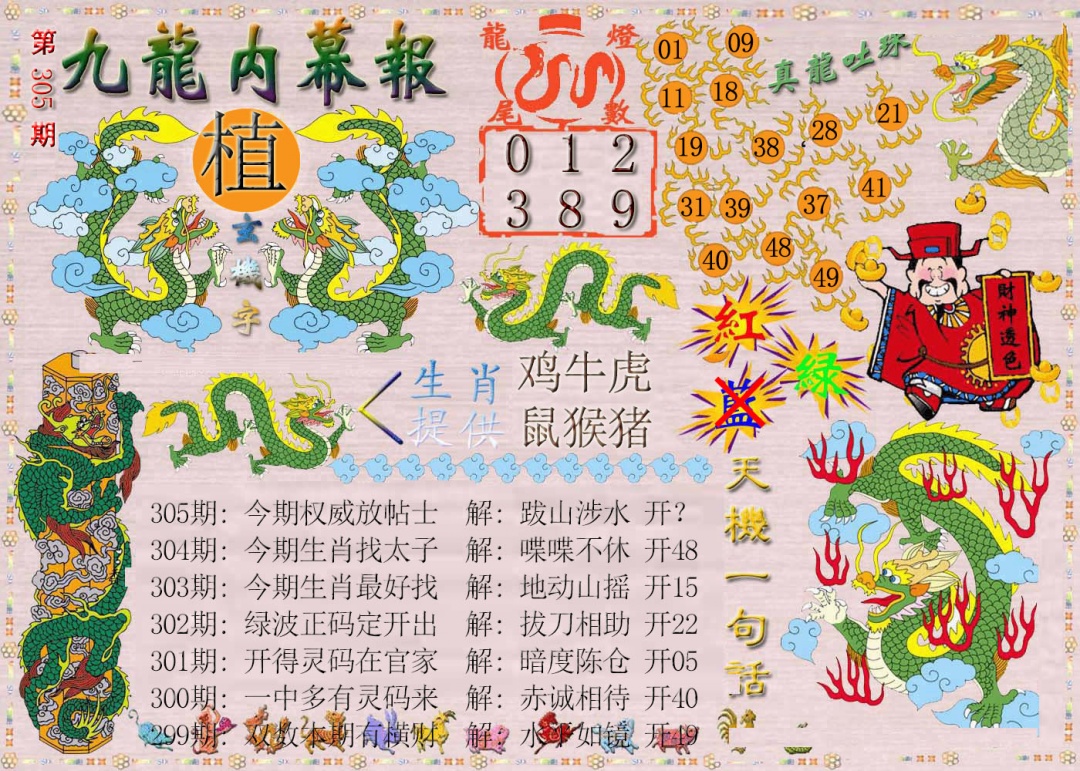 第305期
九龍内幕報
植
玄機字
龍燈尾數
0 1 2
3 8 9
真龍吐珠
01 09
11 18
19 38 28 21
31 39 37 41
40 48 49
紅
綠
藍
財神透色
生肖提供
鸡牛虎
鼠猴猪
天機一句話
305期：今期权威放帖士 解：跋山涉水 开？
304期：今期生肖找太子 解：喋喋不休 开48
303期：今期生肖最好找 解：地动山摇 开15
302期：绿波正码定开出 解：拔刀相助 开22
301期：开得灵码在官家 解：暗度陈仓 开05
300期：一中多有灵码来 解：赤诚相待 开40
299期：双数本期有横财 解：水平如镜 开49